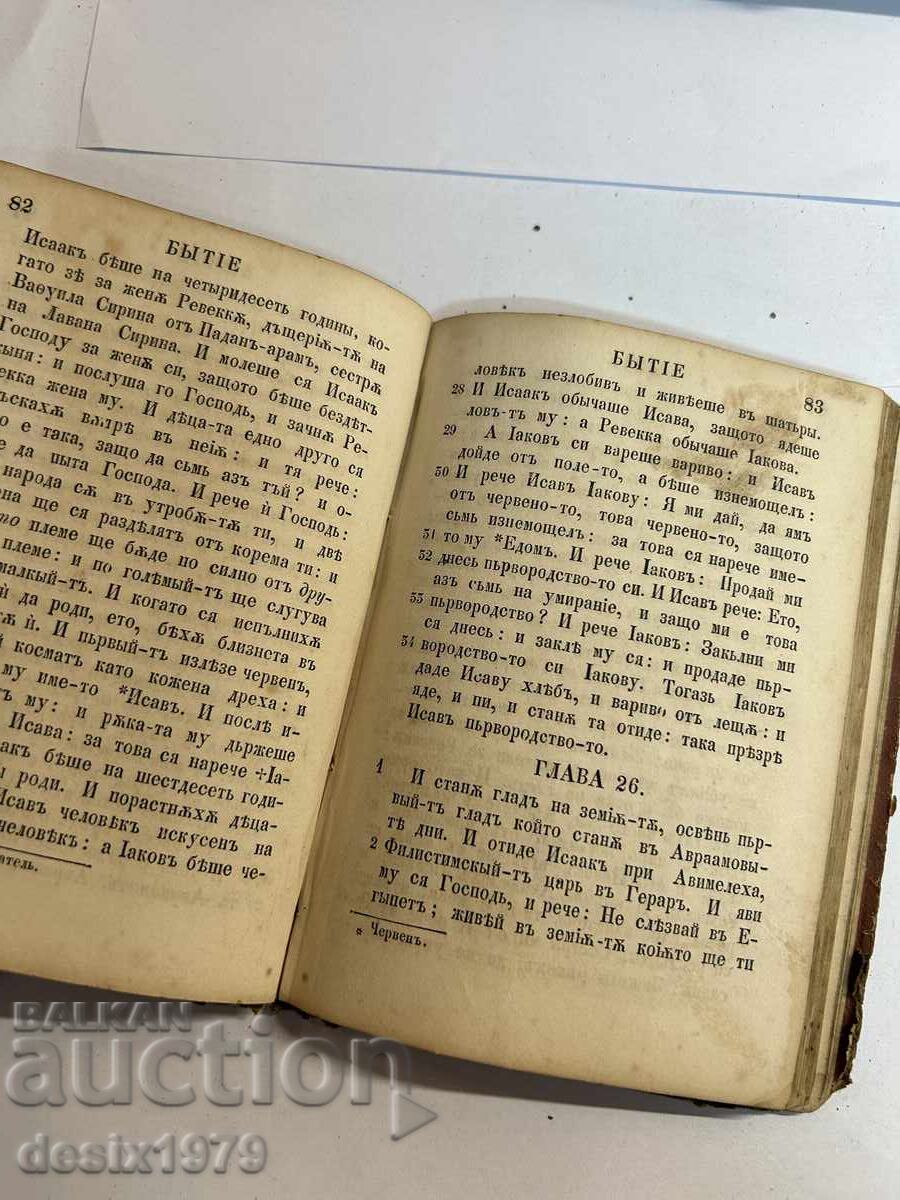 82
БЫТІЕ
Исаакъ бѣше на четыридесеть годины, ко-
гато зѣ за женѫ Ревеккѫ, дъщерѭ-тѫ на
Ваѳуила Сирина отъ Паданъ-арам, сестрѫ
на Лавана Сирина. И молеше ся Исаакъ
Господу за женѫ си, защото бѣше бездѣт-
кыня: и послуша го Господь, и зачнѫ Ре-
векка жена му. И дѣца-та едно друго ся
тъскахѫ вѫтрѣ въ неіѭ: и тя рече:
е така, защо да съмь азъ тъй? и о-
да пыта Господа. И рече ѝ Господь:
народа сѫ въ утробѫ-тѫ ти, и двѣ
ще ся раздѣлятъ отъ корема ти: и
племе ще бѫде по силно отъ дру-
племе: и по голѣмый-тъ ще слугува
малкый-тъ. И когато ся испълнихѫ
да роди, ето, бѣхѫ близнета въ
ѝ. И първый-тъ излѣзе червен,
косматъ като кожена дреха: и
му име-то *Исавъ. И послѣ и-
му: и рѫка-та му държеше
Исава: за това ся нарече ✢Іа-
бѣше на шестдесеть годи-
роди. И порастнѫхѫ дѣца-
Исавъ человѣкъ искусен на
человѣкъ: а Іаковъ бѣше че-
БЫТІЕ
83
ловѣкъ незлобивъ и живѣеше въ шатъры.
28 И Исаакъ обычаше Исава, защото ядеше
ловъ-тъ му: а Ревекка обычаше Іакова.
29 А Іаковъ си вареше вариво: и Исавъ
дойде отъ поле-то, а бѣше изнемощелъ:
30 И рече Исавъ Іакову: Я ми дай, да ямъ
отъ червено-то, това червено-то, защото
съмь изнемощелъ: за това ся нарече име-
31 то му *Едомъ. И рече Іаковъ: Продай ми
32 днесь първородство-то си. И Исавъ рече: Ето,
азъ съмь на умираніе, и защо ми е това
33 първородство? И рече Іаковъ: Закълни ми
ся днесь: и заклѣ му ся: и продаде пър-
34 вородство-то си Іакову. Тогазь Іаковъ
даде Исаву хлѣбъ, и вариво отъ лещѫ: и
яде, и пи, и станѫ та отиде: така прѣзрѣ
Исавъ първородство-то.
ГЛАВА 26.
1 И станѫ гладъ на земіѭ-тѫ, освѣнь пър-
вый-тъ гладъ който станѫ въ Авраамовы-
тѣ дни. И отиде Исаакъ при Авимелеха,
2 Филистимскый-тъ царь въ Гераръ. И яви
му ся Господь, и рече: Не слѣзвай въ Е-
гыпетъ; живѣй въ земіѭ-тѫ коіѭто ще ти
* Червенъ.
BALKAN
auction
desix1979